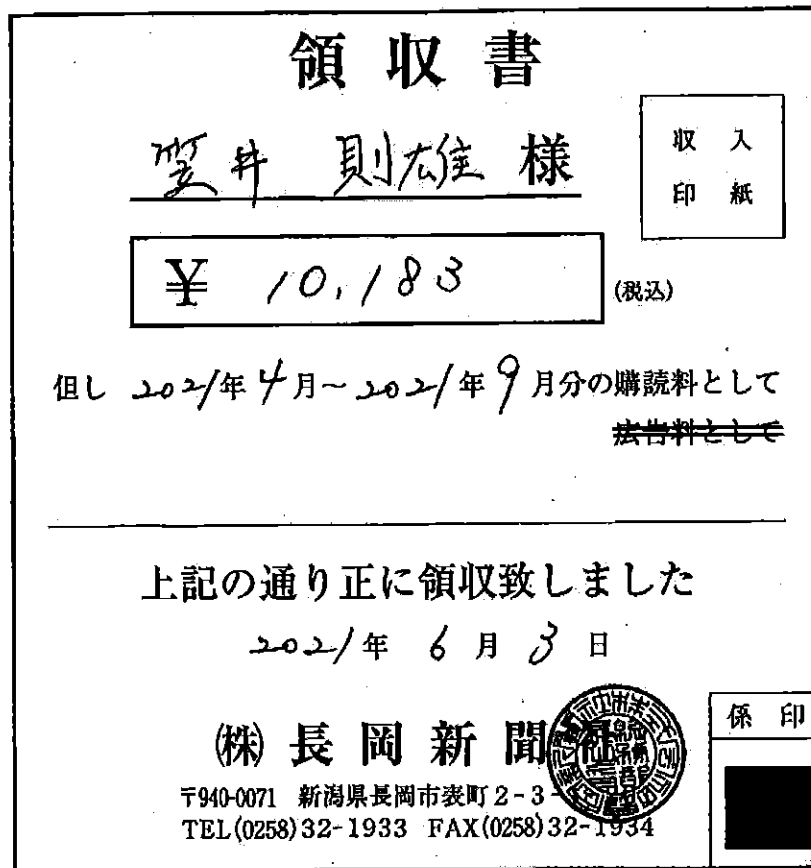 領収書
笠井 則雄 様
収入
印紙
¥ 10,183
(税込)
但し 2021年4月～2021年9月分の購読料として
広告料として
上記の通り正に領収致しました
2021年 6月 3日
係印
(株)長岡新聞社
〒940-0071 新潟県長岡市表町2-3-
TEL(0258)32-1933 FAX(0258)32-1934